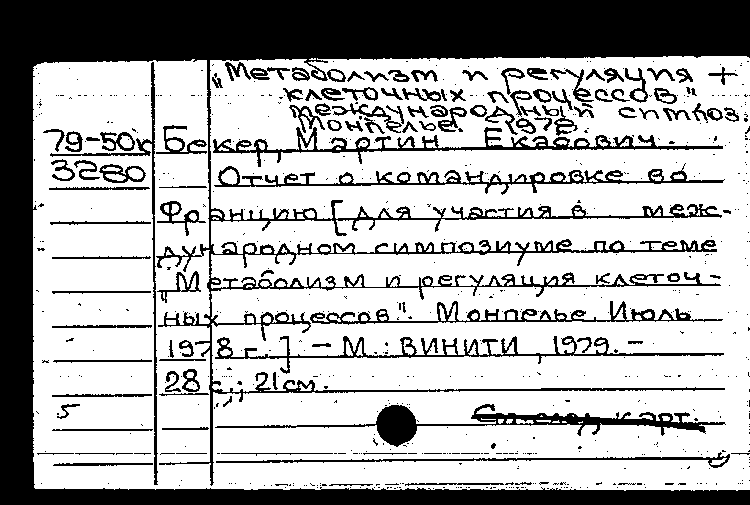 „Метаболизм и регуляция +
клеточных процессов"
международный симпоз.
Монпелье. 1978.
79-50к Бекер, Мартин Екабович.
3280 Отчет о командировке во
Францию [для участия в меж-
дународном симпозиуме по теме
„Метаболизм и регуляция клеточ-
ных процессов". Монпелье. Июль
1978 г.] – М.: ВИНИТИ, 1979. –
28 с.; 21 см.
5 См. след. карт.